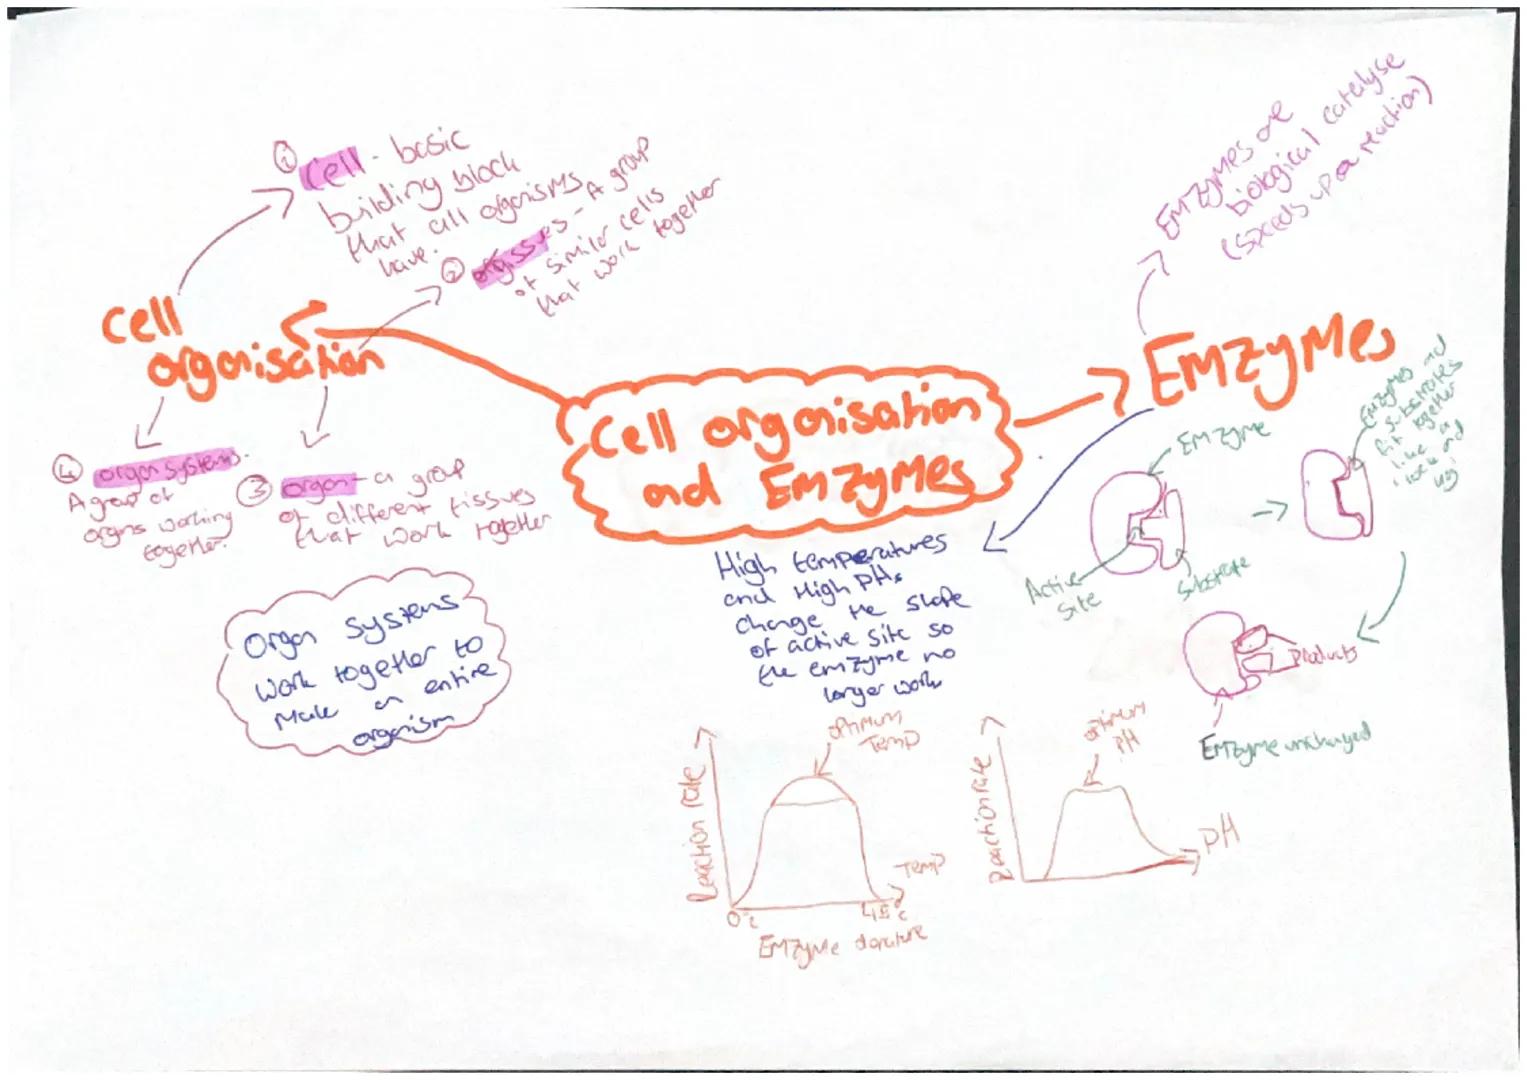 ① Cell - basic
building block
that all organisms
have.
② orgissues - A group
of similar cells
that work together
Cell
organisation
④ organ systems.
A group of
organs working
together.
③ organ - a group
of different tissues
that work together
Organ systems
work together to
make an entire
organism
Cell organisation
and Emzymes
Emzymes are
biological catalyse
(speeds up a reaction)
Emzymes
High temperatures
and High PHs
change the shape
of active site so
the emzyme no
longer work
Emzyme
Active
Site
Substrate
Emzymes and
substrates
fit together
like a
lock and
Products
Emzyme unchanged
Reaction rate
optimum
Temp
Temp
0°c
45°c
Emzyme
Reaction rate
optimum
PH
PH